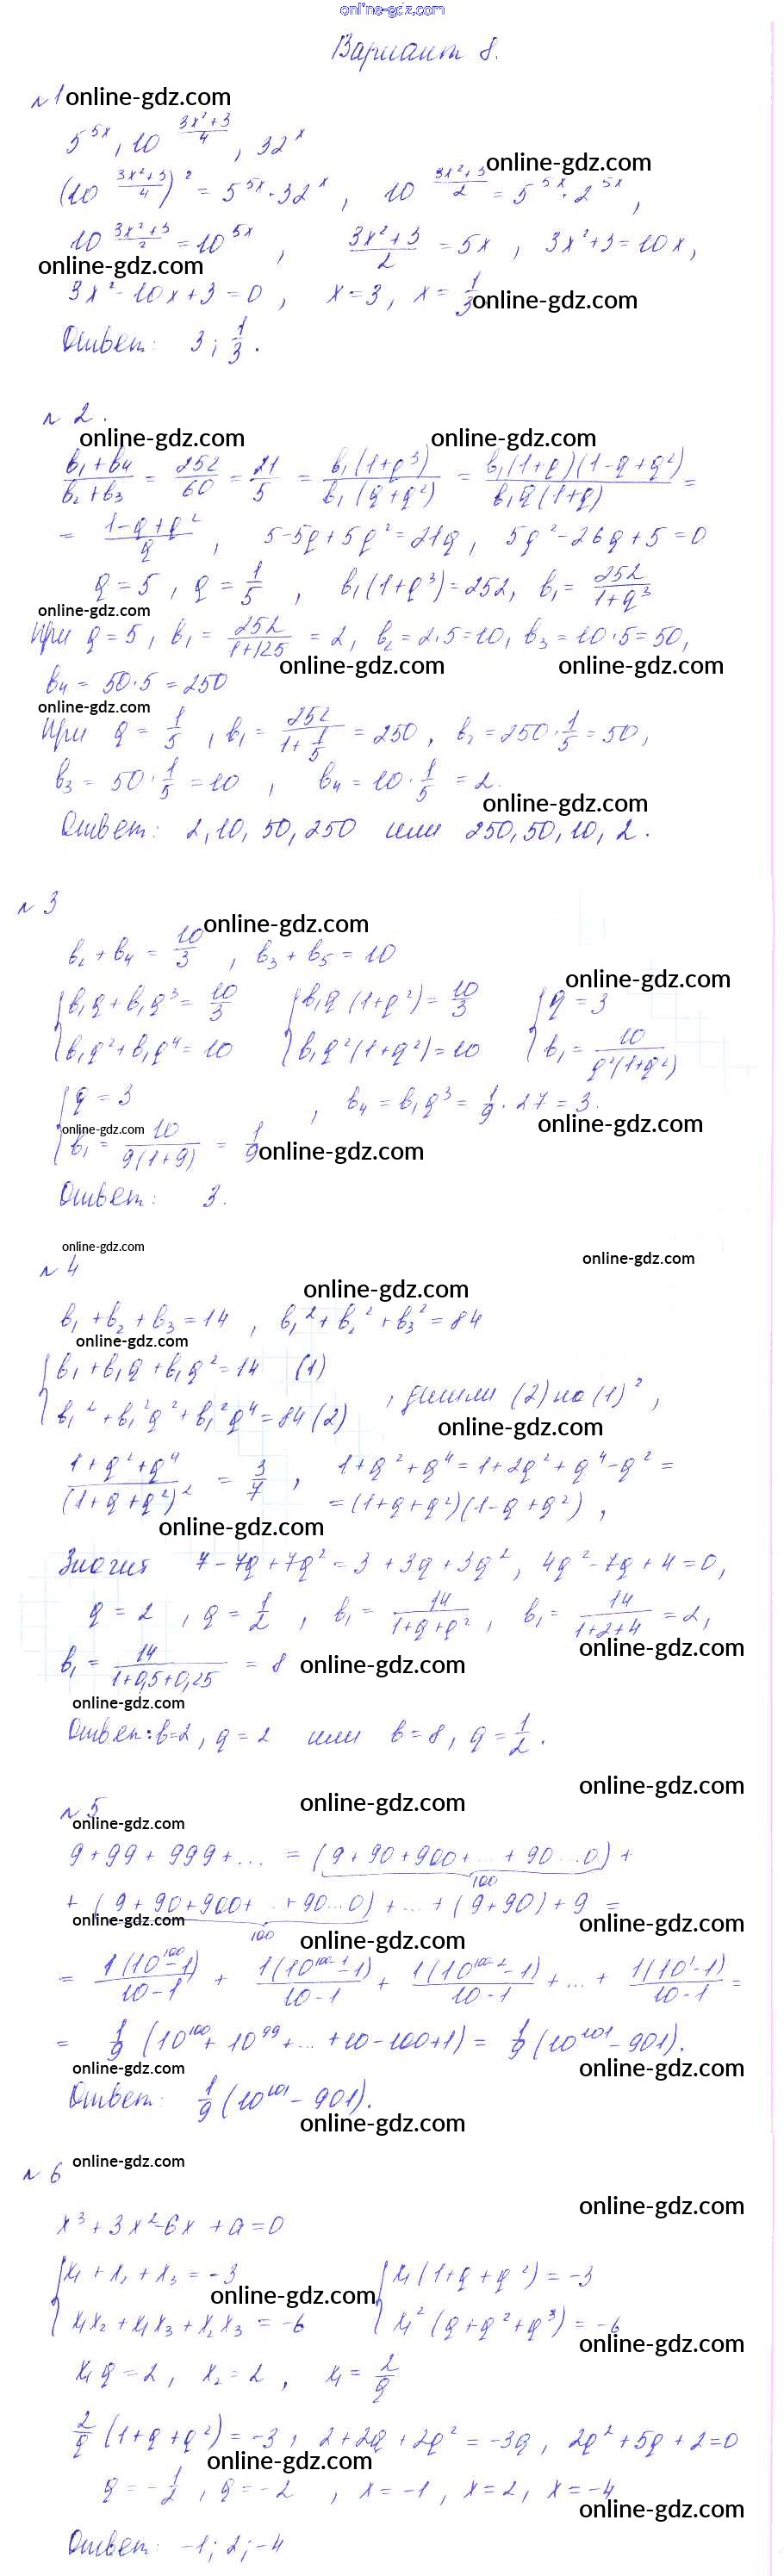 online-gdz.com
Вариант 8.
№1 online-gdz.com
5^{5x}, 10^{\frac{3x²+3}{4}}, 32^x
online-gdz.com
(10^{\frac{3x²+3}{4}})² = 5^{5x}·32^x, 10^{\frac{3x²+3}{2}} = 5^{5x}·2^{5x},
10^{\frac{3x²+3}{2}} = 10^{5x}, \frac{3x²+3}{2} = 5x, 3x²+3=10x,
online-gdz.com
3x²-10x+3=0, x=3, x=\frac{1}{3} online-gdz.com
Ответ: 3; \frac{1}{3}.
№2.
online-gdz.com online-gdz.com
\frac{b₁+b₄}{b₂+b₃} = \frac{252}{60} = \frac{21}{5} = \frac{b₁(1+q³)}{b₁(q+q²)} = \frac{b₁(1+q)(1-q+q²)}{b₁q(1+q)} =
= \frac{1-q+q²}{q}, 5-5q+5q²=21q, 5q²-26q+5=0
q=5, q=\frac{1}{5}, b₁(1+q³)=252, b₁=\frac{252}{1+q³}
online-gdz.com
При q=5, b₁=\frac{252}{1+125}=2, b₂=2·5=10, b₃=10·5=50,
online-gdz.com online-gdz.com
b₄=50·5=250
online-gdz.com
При q=\frac{1}{5}, b₁=\frac{252}{1+\frac{1}{5}}=250, b₂=250·\frac{1}{5}=50,
b₃=50·\frac{1}{5}=10, b₄=10·\frac{1}{5}=2.
online-gdz.com
Ответ: 2, 10, 50, 250 или 250, 50, 10, 2.
№3
online-gdz.com
b₂+b₄=\frac{10}{3}, b₃+b₅=10
online-gdz.com
{b₁q+b₁q³=\frac{10}{3} {b₁q(1+q²)=\frac{10}{3} {q=3
{b₁q²+b₁q⁴=10 {b₁q²(1+q²)=10 {b₁=\frac{10}{q²(1+q²)}
{q=3, b₄=b₁q³=\frac{1}{9}·27=3.
online-gdz.com online-gdz.com
{b₁=\frac{10}{9(1+9)}=\frac{1}{9} online-gdz.com
Ответ: 3.
online-gdz.com online-gdz.com
№4
online-gdz.com
b₁+b₂+b₃=14, b₁²+b₂²+b₃²=84
online-gdz.com
{b₁+b₁q+b₁q²=14 (1)
{b₁²+b₁²q²+b₁²q⁴=84 (2), делим (2) на (1)²,
online-gdz.com
\frac{1+q²+q⁴}{(1+q+q²)²}=\frac{3}{7}, 1+q²+q⁴=1+2q²+q⁴-q²=
=(1+q+q²)(1-q+q²),
online-gdz.com
Значит 7-7q+7q²=3+3q+3q², 4q²-7q+4=0,
q=2, q=\frac{1}{2}, b₁=\frac{14}{1+q+q²}, b₁=\frac{14}{1+2+4}=2,
online-gdz.com
b₁=\frac{14}{1+0,5+0,25}=8 online-gdz.com
online-gdz.com
Ответ: b=2, q=2 или b=8, q=\frac{1}{2}.
online-gdz.com
№5 online-gdz.com
online-gdz.com
9+99+999+... = (9+90+900+...+90...0)+
100
+(9+90+900+...+90...0)+...+(9+90)+9=
online-gdz.com online-gdz.com
100 online-gdz.com
= \frac{1(10^{100}-1)}{10-1} + \frac{1(10^{100-1}-1)}{10-1} + \frac{1(10^{100-2}-1)}{10-1}+...+\frac{1(10¹-1)}{10-1}=
= \frac{1}{9}(10^{100}+10^{99}+...+10-100+1)=\frac{1}{9}(10^{101}-901).
online-gdz.com online-gdz.com
Ответ: \frac{1}{9}(10^{101}-901).
online-gdz.com
№6 online-gdz.com
online-gdz.com
x³+3x²-6x+a=0
{x₁+x₂+x₃=-3 {x₁(1+q+q²)=-3
online-gdz.com
{x₁x₂+x₁x₃+x₂x₃=-6 {x₁²(q+q²+q³)=-6
online-gdz.com
x₁q=2, x₂=2, x₁=\frac{2}{q}
\frac{2}{q}(1+q+q²)=-3, 2+2q+2q²=-3q, 2q²+5q+2=0
online-gdz.com
q=-\frac{1}{2}, q=-2, x=-1, x=2, x=-4
online-gdz.com
Ответ: -1; 2; -4